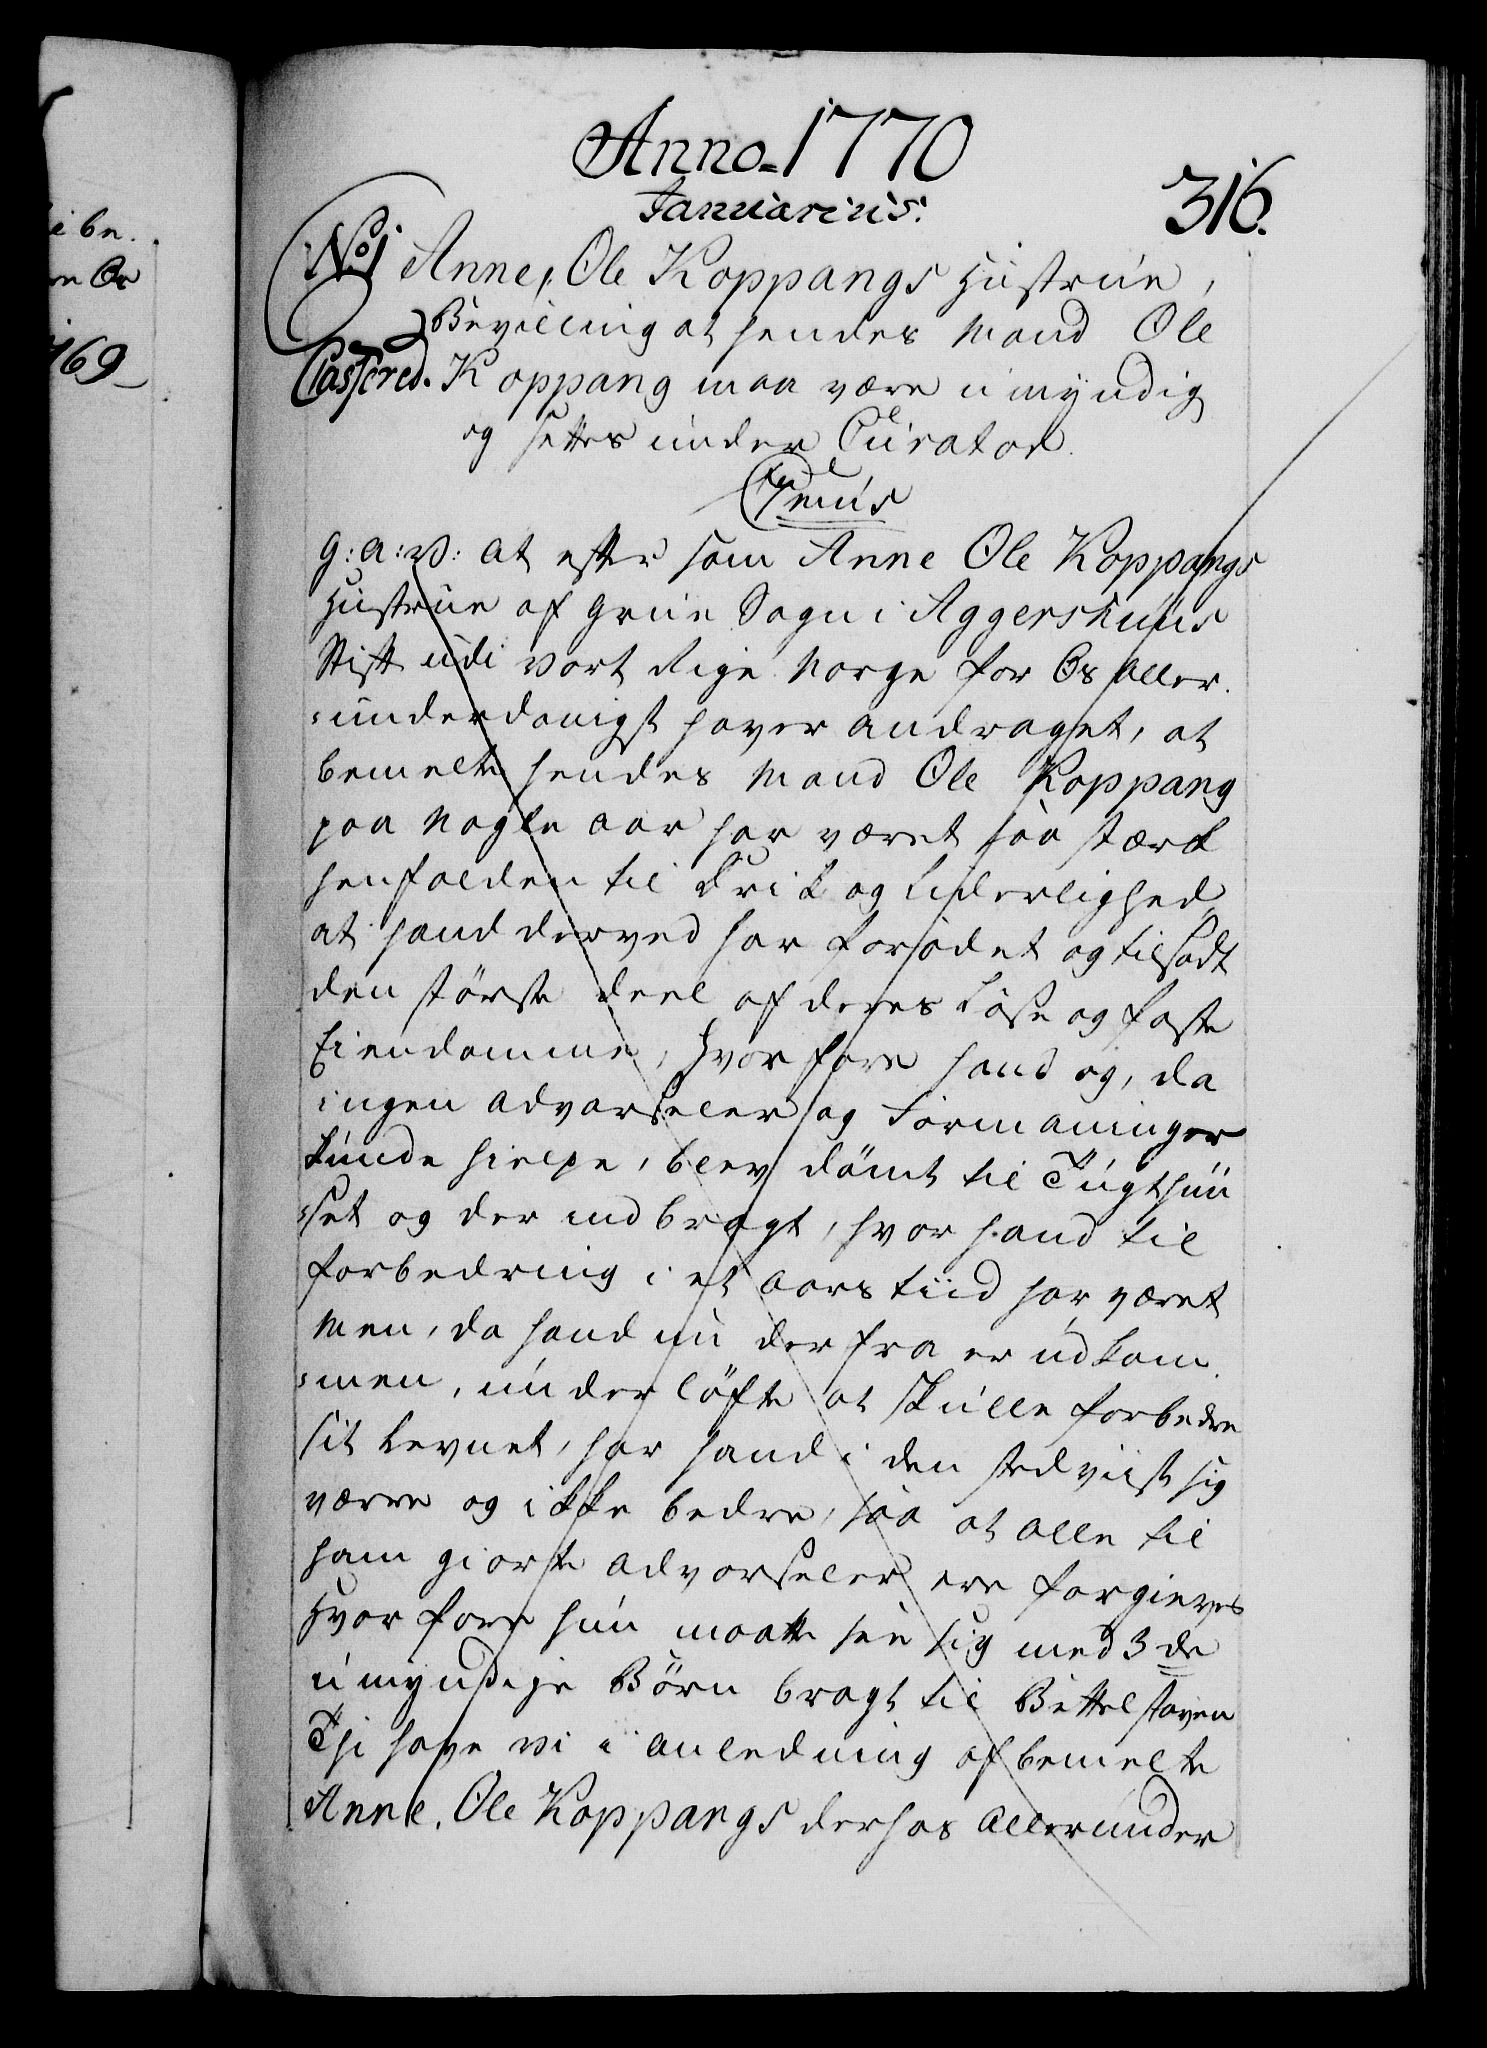 Anno 1770
Januarius.
316.
No 1 Anne, Ole Koppangs Hustrue,
Bevilling at hendes Mand Ole
Cassered. Koppang maa være umyndig
og settes under Curator.
G: A: V: At eftersom Anne Ole Koppangs
Hustrue af Grue Sogn i Aggershuus
Stift udi Vort Rige Norge for Os Aller-
=underdanigst haver andraget, at
bemelte hendes Mand Ole Koppang
paa Nogle Aar har været saa stærk
henfalden til Drik og Liderlighed
at hand derved har forødet og tilsadt
den störste deel af deres Løse og faste
Eiendomme, hvorfore hand og, da
ingen Advarseler og Formaninger
kunde hielpe, blev dömt til Tugthuu
=set og der indbragt, hvor hand til
forbedring i et Aars tiid har været
Men, da hand nu derfra er udkom
=men, under löfte at skulle forbedre
sit Levnet, har hand i den sted viist sig
værre og ikke bedre, saa at alle til
ham giorte Advarseler ere forgieves
Hvorfore hun maatte see sig med 3de
umyndige Börn bragt til Bettelstaven
Thi have Vi i anledning af bemelte
Anne, Ole Koppangs derhos Allerunder
be.
169